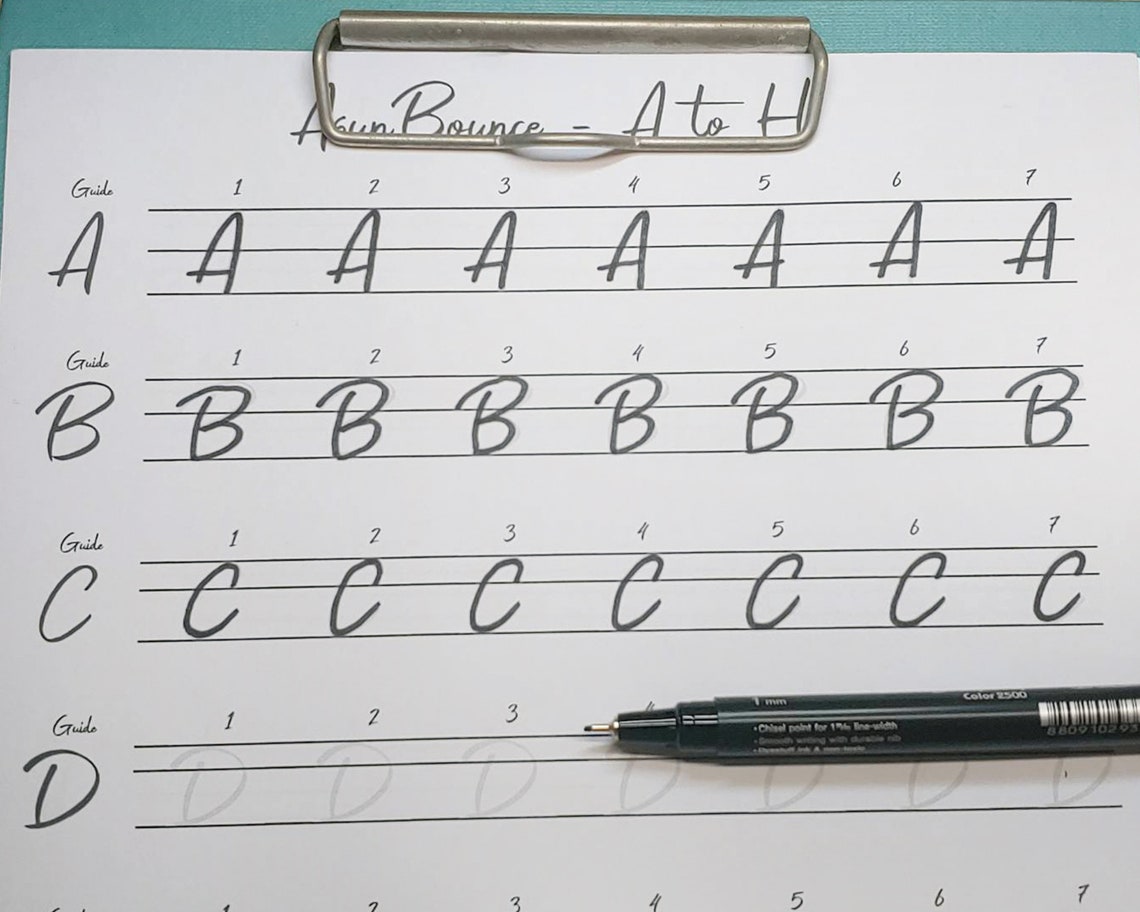 Asun Bounce - A to H
Guide 1 2 3 4 5 6 7
A A A A A A A A
Guide 1 2 3 4 5 6 7
B B B B B B B B
Guide 1 2 3 4 5 6 7
C C C C C C C C
Guide 1 2 3 4
D D D D D D D D
1 mm Color 2500
•Chisel point for 1mm line-width
writing with durable nib
880910293
1 2 3 4 5 6 7